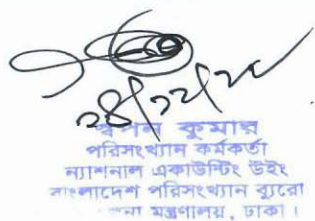 ২৪/১২/২৮
স্বপন কুমার
পরিসংখ্যান কর্মকর্তা
ন্যাশনাল একাউন্টিং উইং
বাংলাদেশ পরিসংখ্যান ব্যুরো
মন্ত্রণালয়, ঢাকা।